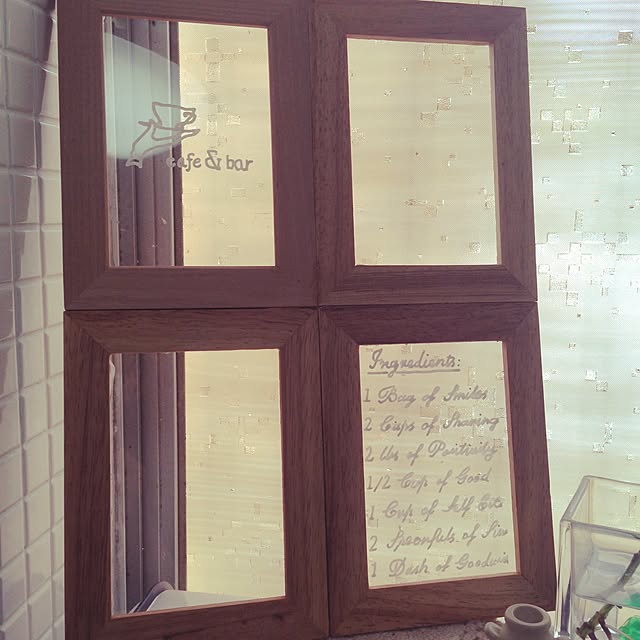 cafe & bar
Ingredients:
1 Bag of Smiles
2 Cups of Sharing
2 of Positivity
1/2 Cup of Good
1 Cup of Self
2 Spoonfuls of
1 Dash of